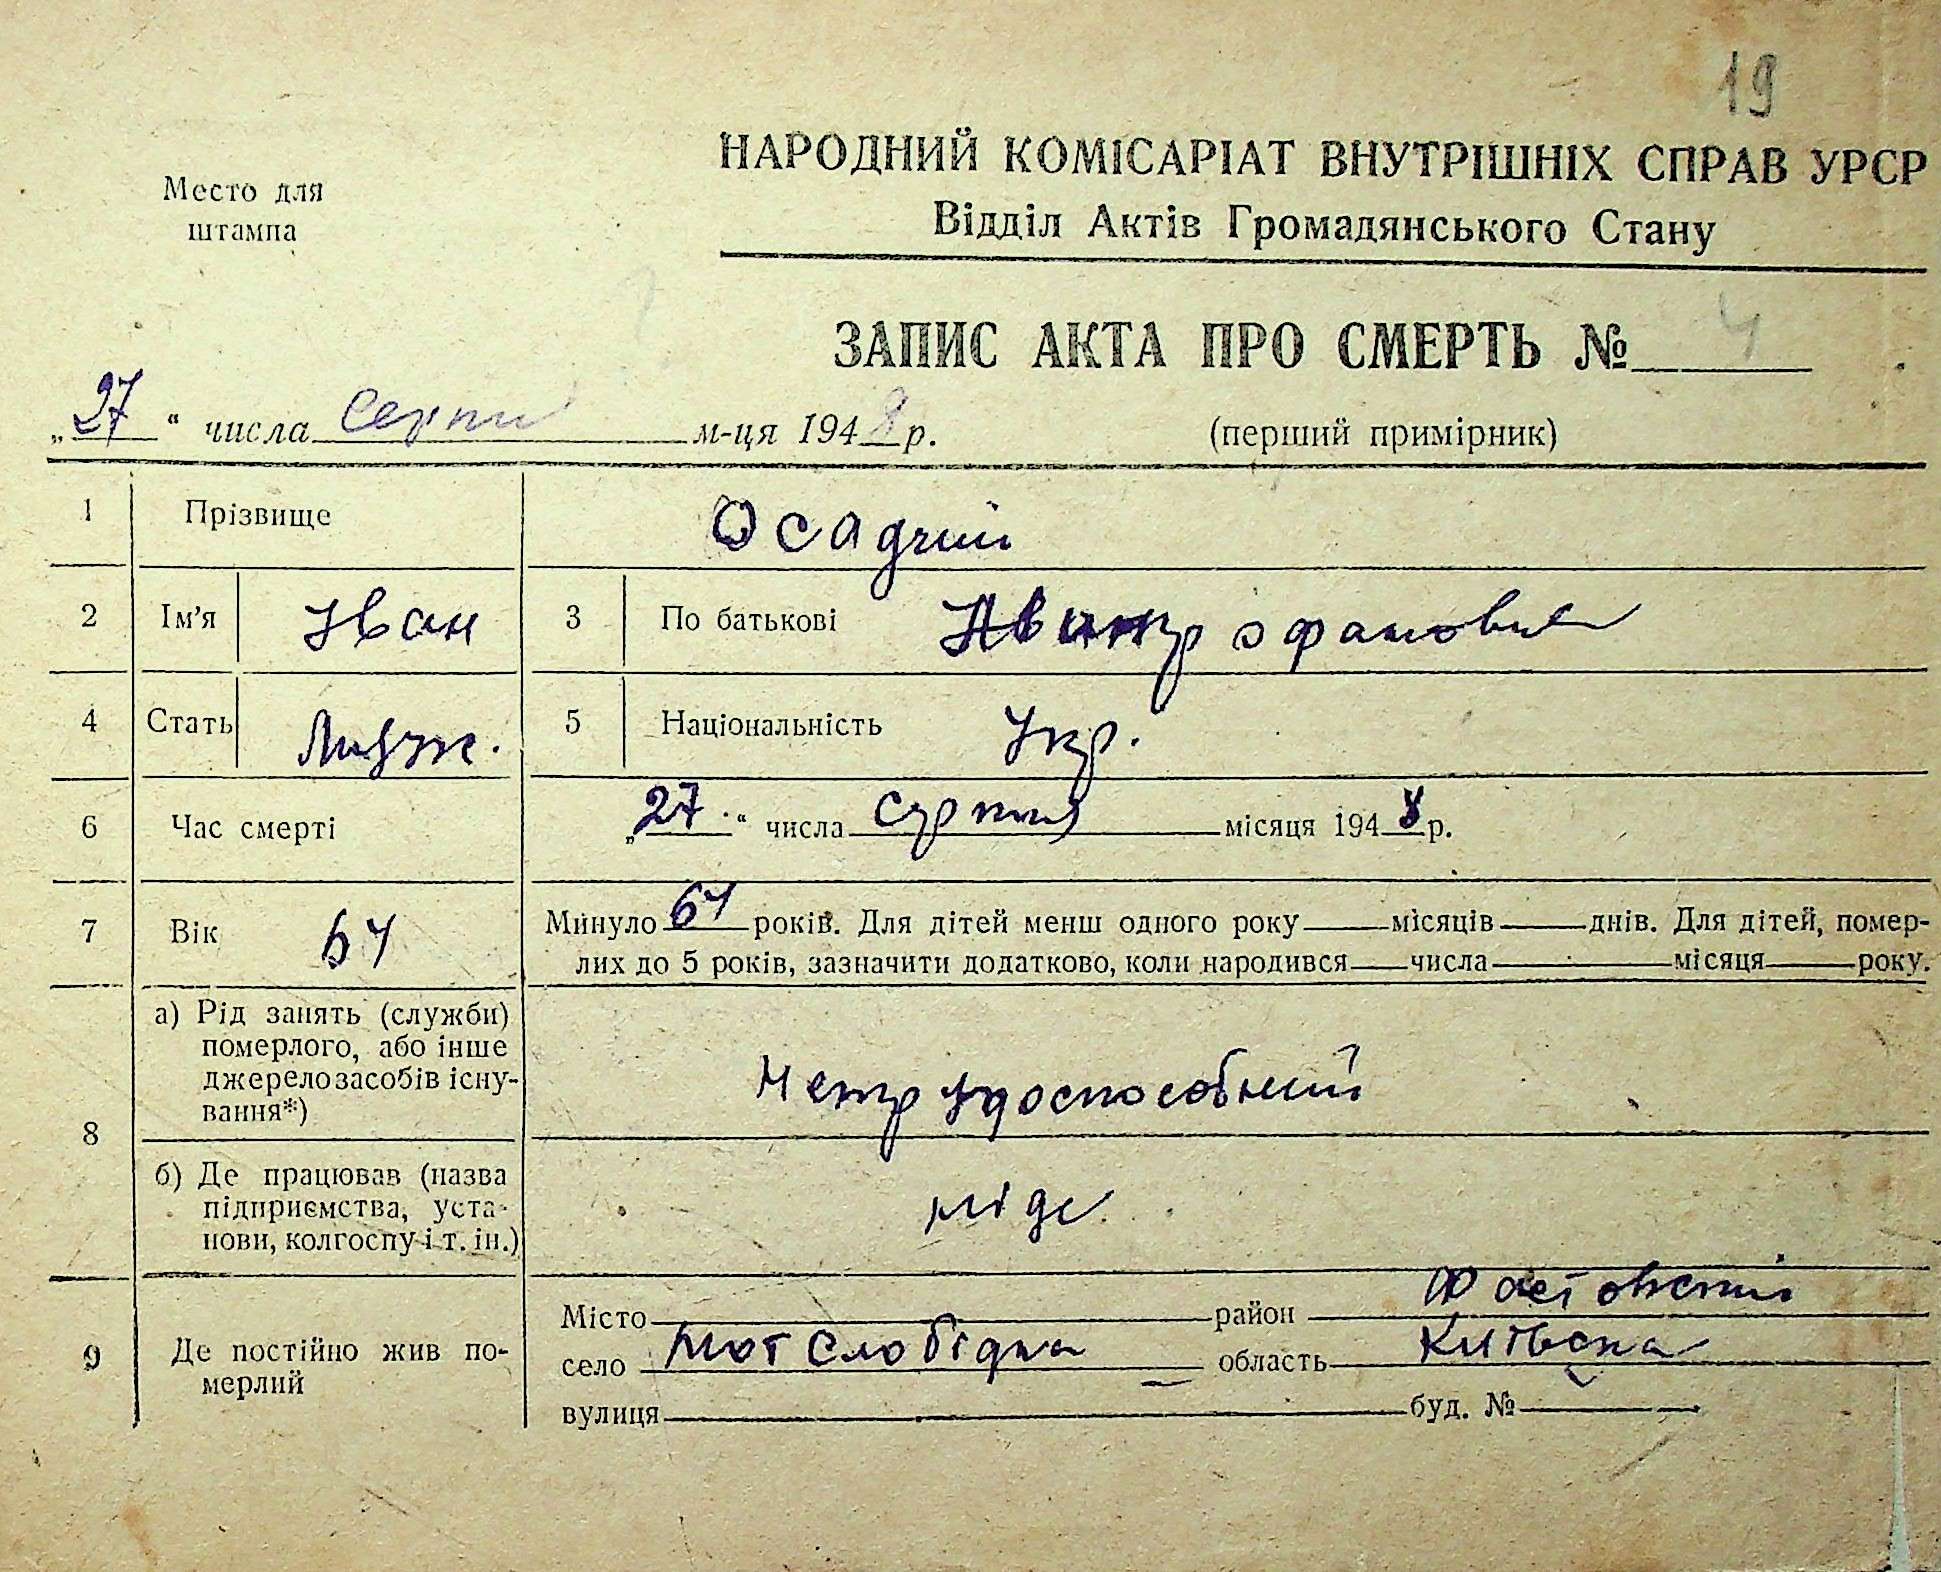 19
Место для
штампа
НАРОДНИЙ КОМІСАРІАТ ВНУТРІШНІХ СПРАВ УРСР
Відділ Актів Громадянського Стану
ЗАПИС АКТА ПРО СМЕРТЬ № 4
„27“ числа серпня м-ця 1948 р.
(перший примірник)
1 Прізвище Осадчий
2 Ім’я Іван 3 По батькові
4 Стать Мужж. 5 Національність Укр.
6 Час смерті „27.“ числа серпня місяця 1948 р.
7 Вік 64 Минуло 64 років. Для дітей менш одного року місяців днів. Для дітей, помер-
лих до 5 років, зазначити додатково, коли народився числа місяця року.
8 а) Рід занять (служби)
померлого, або інше
джерело засобів існу-
вання*)
Нетрудоспособний
б) Де працював (назва
підприємства, уста-
нови, колгоспу і т. ін.)
нідe
9 Де постійно жив по-
мерлий
Місто район Фастовский
село Мотслобідка область Київська
вулиця буд. №